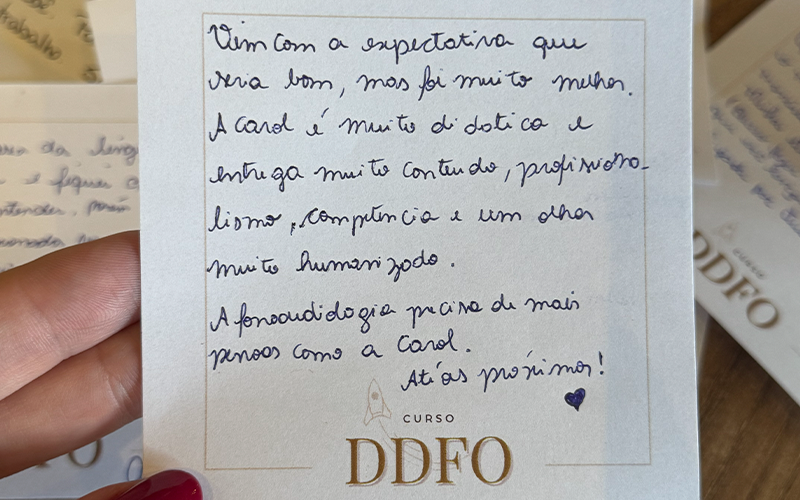 Vim com a expectativa que
seria bom, mas foi muito melhor.
A Carol é muito didática e
entrega muito conteudo, profissiona-
lismo, competência e um olhar
muito humanizado.
A fonoaudiologia precisa de mais
pessoas como a Carol.
Até as próximas!
CURSO
DDFO
trabalho
e fiquei
CURSO
DDFO